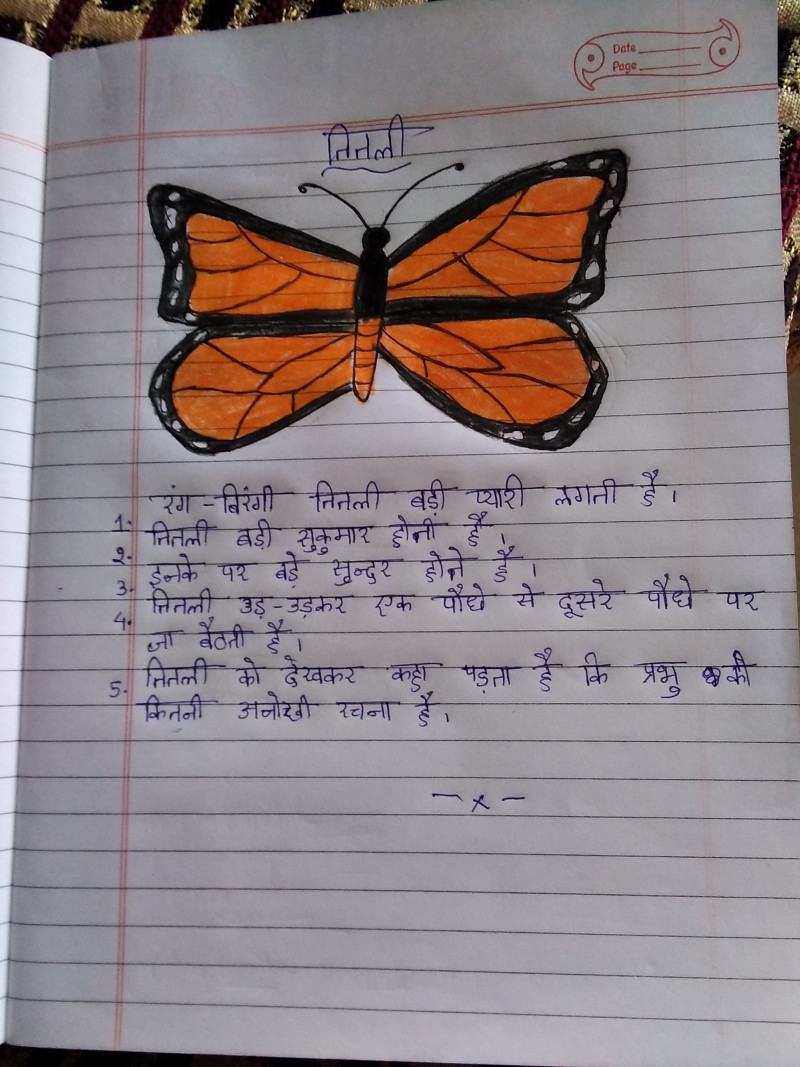 Date
Page
तितली
1. रंग-बिरंगी तितली बड़ी प्यारी लगती है।
2. तितली बड़ी सुकुमार होती है।
3. इनके पर बड़े सुन्दर होते हैं।
4. तितली उड़-उड़कर एक पौधे से दूसरे पौधे पर
जा बैठती है।
5. तितली को देखकर कहा पड़ता है कि प्रभु की
कितनी अनोखी रचना है।
-x-